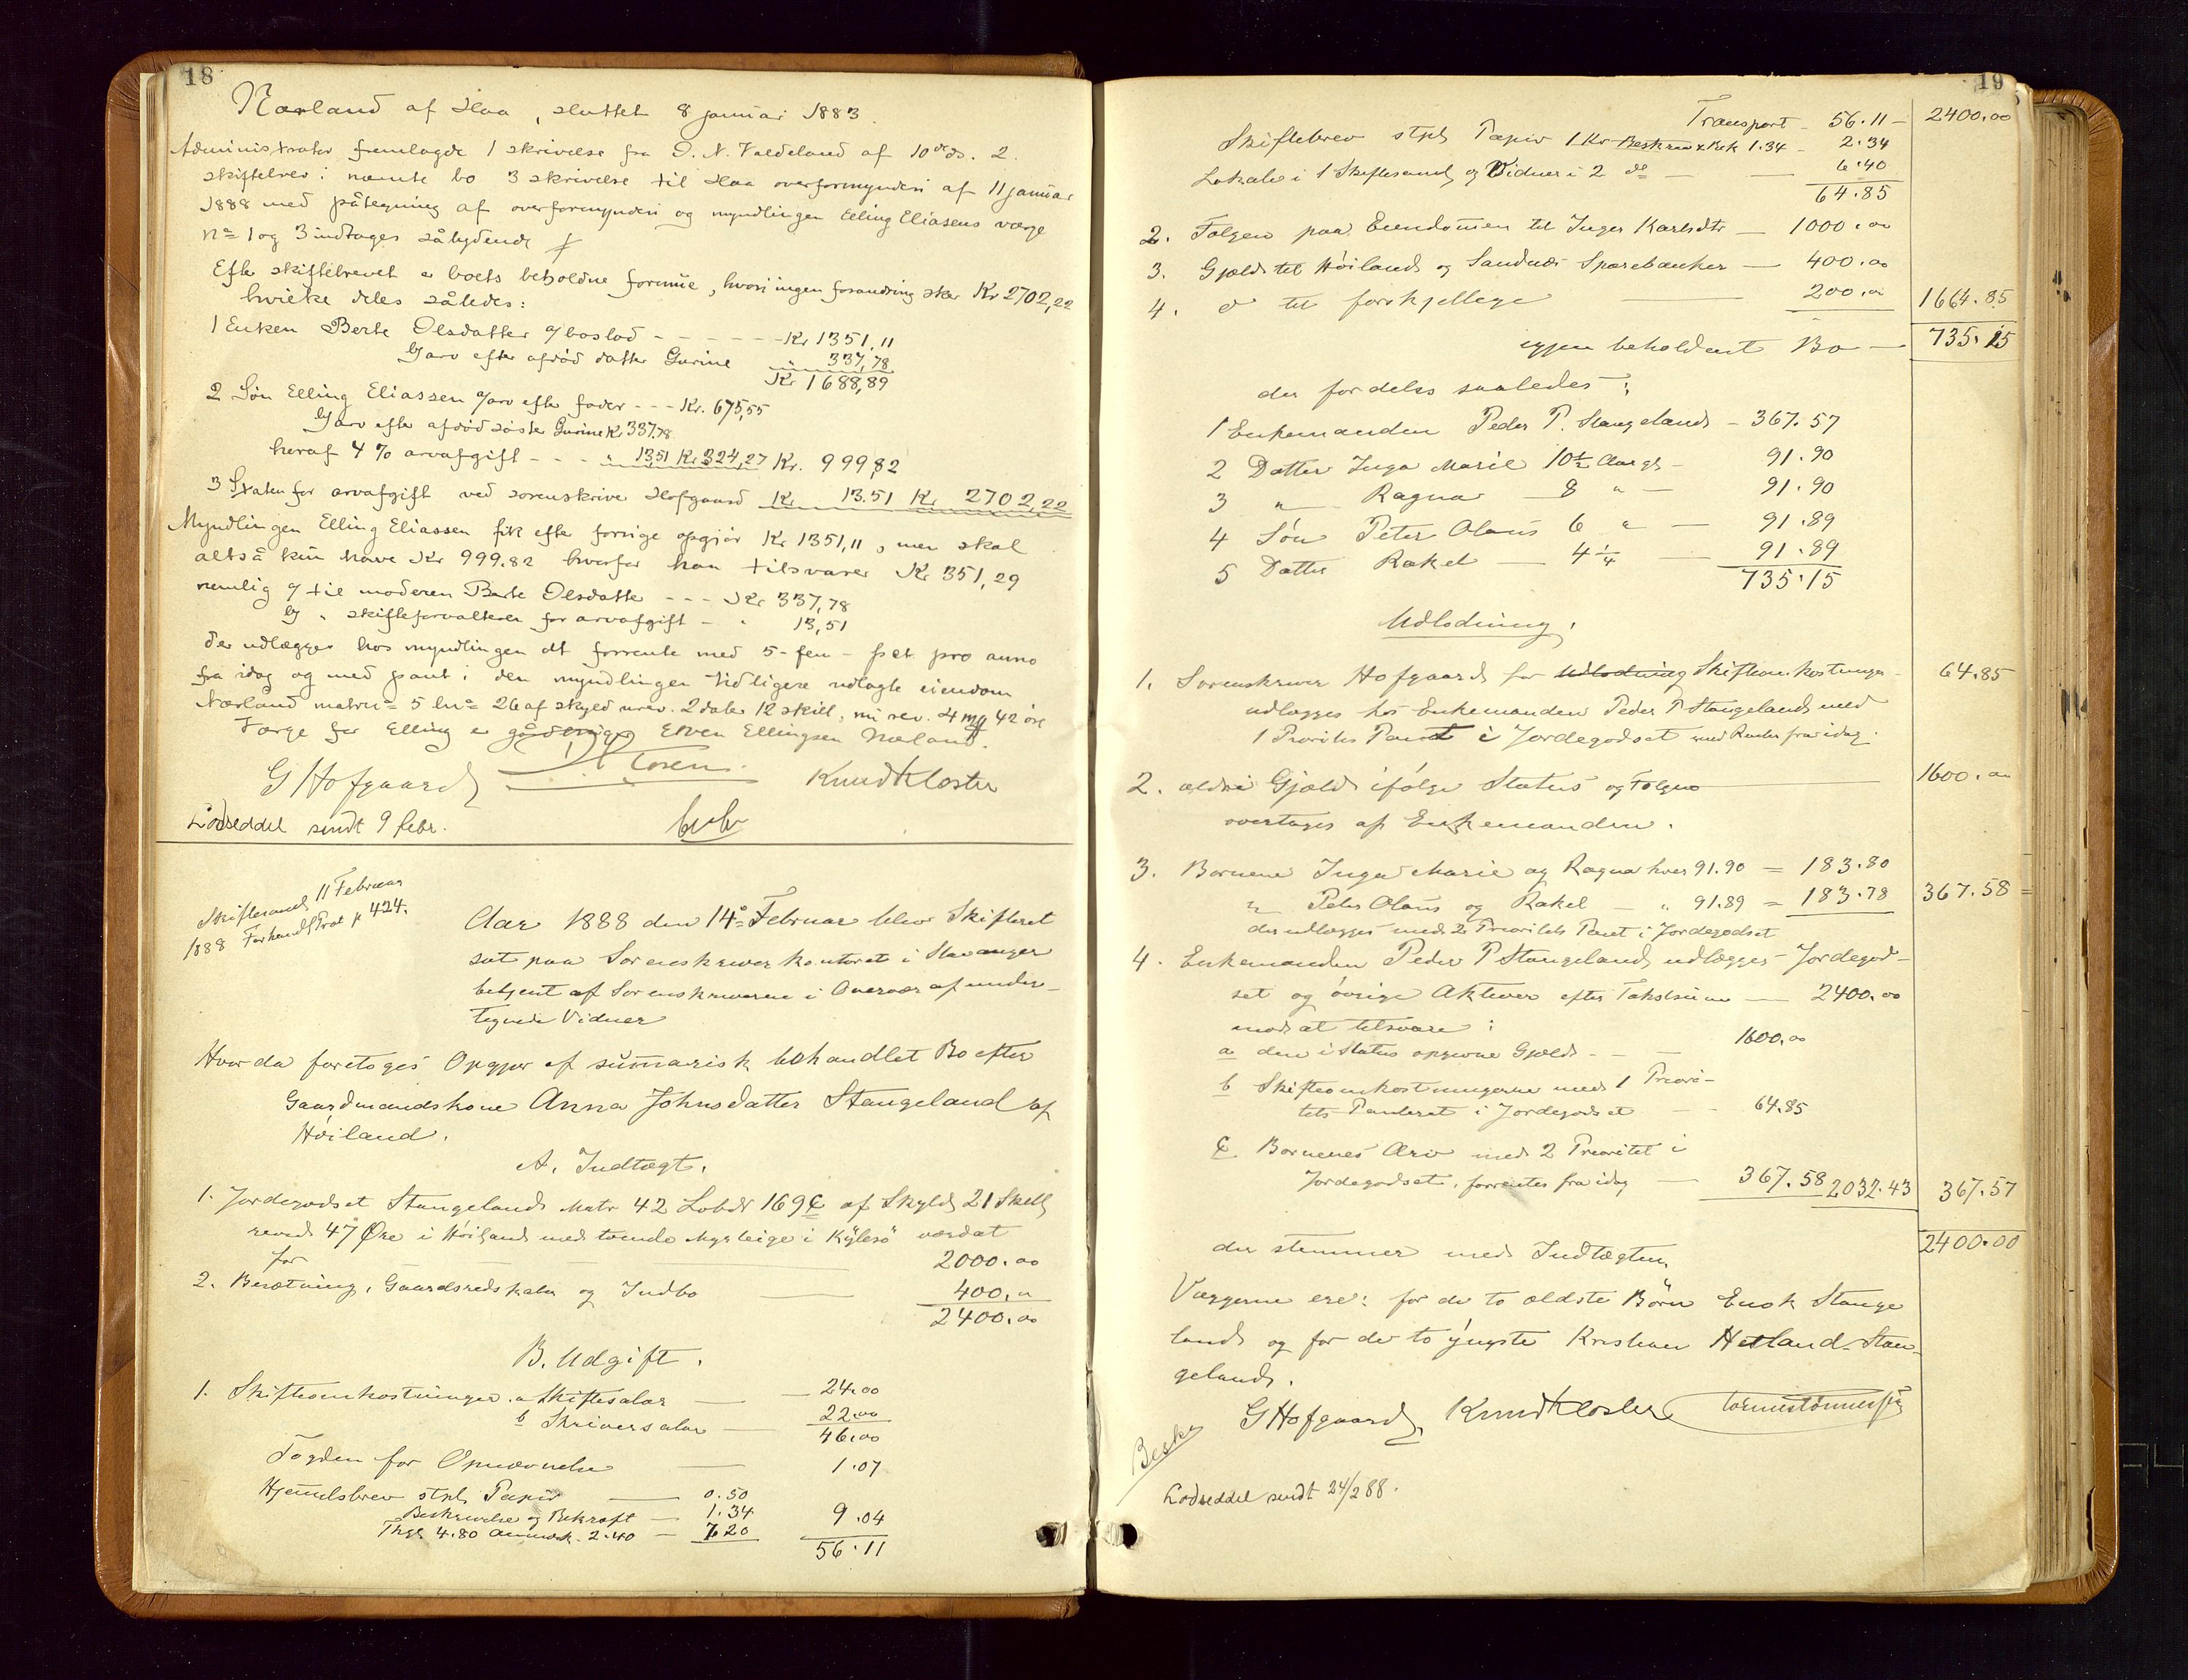 18
Nærland af Haa, sluttet 8 januar 1883.
Administrator fremlagde 1 skrivelse fra O. N. Valdeland af 10de ds. 2.
skiftebrev i nævnte bo 3 skrivelse til Haa overformynderi af 11 januar
1888 med påtegning af overformynderi og myndlingen Elling Eliasens værge
No 1 og 3 indtages sålydende
Efter skiftebrevet er boets beholdne formue, hvori ingen forandring sker Kr 2702,22
hvilke deles således:
1 Enken Berte Olsdatter a/ boslod - - - - - - Kr 1351,11
b/ arv efter afdød datter Gurine " 337,78
Kr 1688,89
2 Søn Elling Eliassen a/ arv efter fader - - - Kr. 675,55
b/ arv efter afdød søster Gurine Kr 337,78
heraf 4 % arvafgift - - - " 13,51 Kr 324,27 Kr. 999,82
3 Staten for arvafgift ved sorenskriver Hofgaard Kr 13.51 Kr 2702,22
Myndlingen Elling Eliassen fik efter forrige opgjør Kr 1351,11, men skal
altså kun have Kr 999.82 hvorfor han tilsvarer Kr 351,29
nemlig a/ til moderen Berte Olsdatter - - - Kr 337,78
b/ " skifteforvalteren for arvafgift - " 13,51
der udlægges hos myndlingen at forrente med 5 - fem - pct. pro anno
fra idag og med pant i den myndlingen tidligere udlagte eiendom
Nærland matrno 5 lno 26 af skyld urev. 2 daler 12 skill, nu rev. 4 mk 42 øre
Værge for Elling er gårdbruger Even Ellingsen Nærland.
G Hofgaard Knud Kloster
Lodseddel sendt 9 febr.
Skiftesaml 11 Februar
1888 Forhandl Prot p 424.
Aar 1888 den 14de Februar blev Skifteret
sat paa Sorenskriverkontoret i Stavanger
betjent af Sorenskriveren i Overvær af under-
tegnede Vidner
Hvor da foretoges Opgjør af summarisk behandlet Bo efter
Gaardmandskone Anna Johnsdatter Stangeland af
Høiland.
A. Indtægt.
1. Jordegodset Stangeland Matr 42 Lobnr 169 c af Skyld 21 Skill
revid 47 Øre i Høiland med tvende Myrteige i Kyllesø værdat
for 2000.00
2. Besætning, Gaardsredskaber og Indbo 400.00
2400.00
B. Udgift.
1. Skifteomkostninger. a Skiftesalær — 24.00
b Skriversalær — 22.00
46.00
Fogden for Opnævnelse — 1.07
Hjemmelsbrev stpl. Papir — 0.50
Beskrivelse og Bekræft — 1.34 9.04
Thgl 4.80 Anmærk. 2.40 — 7.20
56.11
19
Transport - 56.11 - 2400.00
Skiftebrev stpl Papir 1 Kr Beskriv & Bek 1.34 - 2.34
Lokale i 1 Skiftesaml og Vidner i 2 do — 6.40
64.85
2. Følgen paa Eiendommen til Inger Karlsdtr — 1000.00
3. Gjæld til Høiland og Sandnæs Sparebanker — 400.00
4. do til forskjellige — 200.00 1664.85
igjen beholdent Bo — 735.15
der fordeles saaledes:
1 Enkemanden Peder P. Stangeland - 367.57
2 Datter Inga Marie 10½ Aargl - 91.90
3 " Ragna - 8 " - 91.90
4 Søn Peter Olaus 6 " - 91.89
5 Datter Rakel - 4¼ 91.89
735.15
Udlodning.
1. Sorenskriver Hofgaard for Udlodning Skifteomkostninger - 64.85
udlægges hos Enkemanden Peder P Stangeland med
1 Prioritets Pant i Jordegodset med Renter fra idag.
2. ældre Gjæld ifølge Status og Følgen 1600.00
overtages af Enkemanden.
3. Børnene Inga Marie og Ragna hver 91.90 = 183.80
" Peter Olaus og Rakel - " 91.89 = 183.78 367.58
der udlægges med 2 Prioritets Pant i Jordegodset
4. Enkemanden Peder P Stangeland udlægges Jordegod-
set og øvrige Aktiver efter Takstsum — 2400.00
mod at tilsvare:
a den i Status opgivne Gjæld - - 1600.00
b Skifteomkostningerne med 1 Priori-
tets Panteret i Jordegodset - - 64.85
c Børnenes Arv med 2 Prioritet i
Jordegodset, forrentes fra idag — 367.58 2032.43 367.57
2400.00
der stemmer med Indtægten.
Værgerne ere: for de to ældste Børn Enok Stange
land og for de to yngste Kristian Hetland-Stan-
geland.
G Hofgaard Knud Kloster
Beskr
Lodseddel sendt 24/2 88.